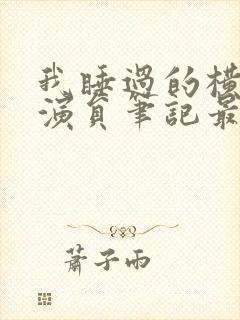 我睡過的橫
演員筆記最
蕭子雨